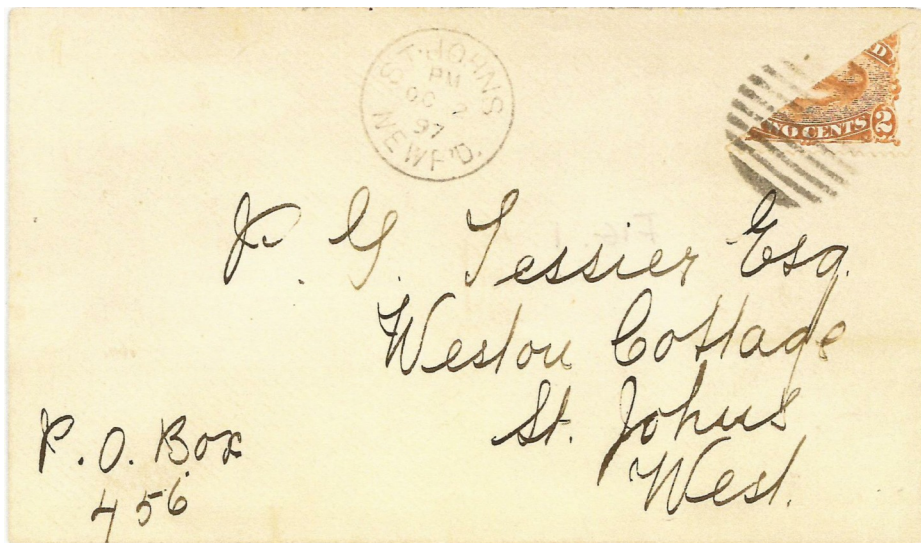 ST. JOHNS
PM
OC 2
97
NEWF'D.
D
TWO CENTS 2
P. G. Tessier Esq.
Weston Cottage
St. Johns
West.
P.O. Box
456